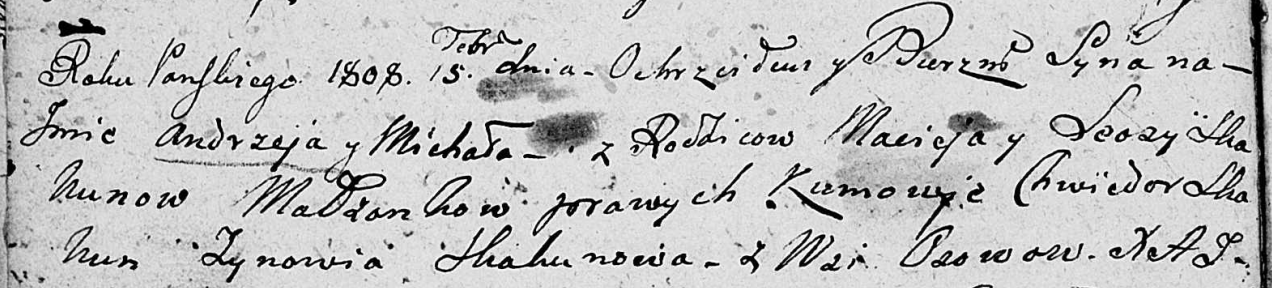 Roku Pańskiego 1808. 15. Febr dnia - Ochrzciłem y Bierzmł Syna na-
Jmie Andrzeja y Michała - z Rodzicow Macieja y Skaku
nunow Małżonkow prawych Kumowie Chwiedor Ska
kun Zynowia Skakunowa - z Wsi Osowow. XAJ-